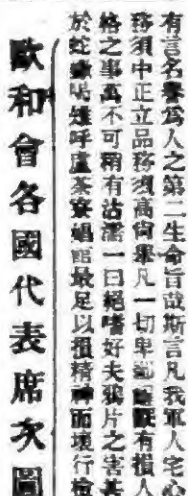 有言名譽爲人之第二生命旨哉斯言凡我軍人宅心
務須中正立品務須高尚舉凡一切卑鄙齷齪有損人
格之事萬不可稍有沾濡一曰絕嗜好夫鴉片之害甚
於蛇蠍喝雉呼盧茶寮娼館最足以損精神而壞行檢
歐和會各國代表席次圖